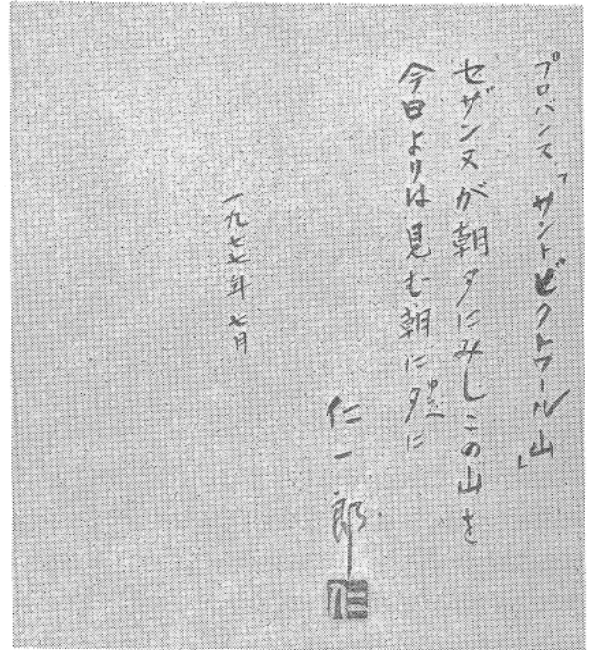 プロバンス「サントビクトワール山」
セザンヌが朝夕にみしこの山を
今日よりは見む朝に夕に
仁一郎
一九七七年七月